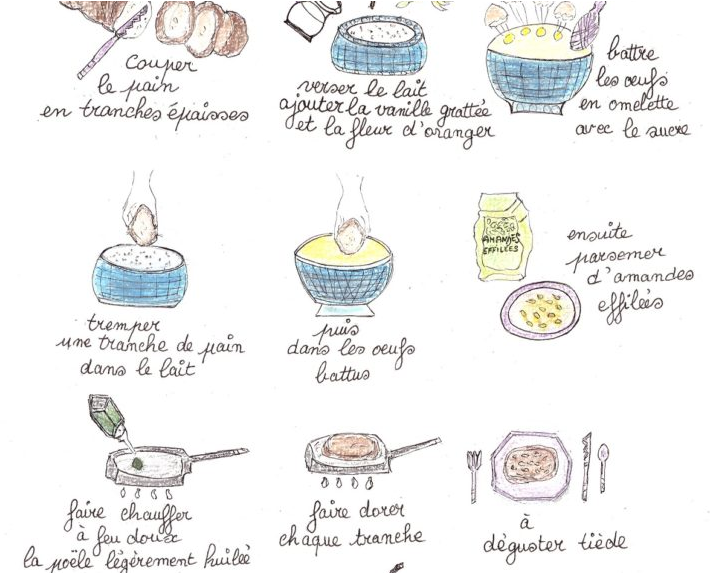 couper
le pain
en tranches épaisses
verser le lait
ajouter la vanille grattée
et la fleur d'oranger
battre
les œufs
en omelette
avec le sucre
tremper
une tranche de pain
dans le lait
puis
dans les oeufs
battus
AMANDES
EFFILÉES
ensuite
parsemer
d'amandes
effilées
faire chauffer
à feu doux
la poële légèrement huilée
faire dorer
chaque tranche
à
déguster tiède